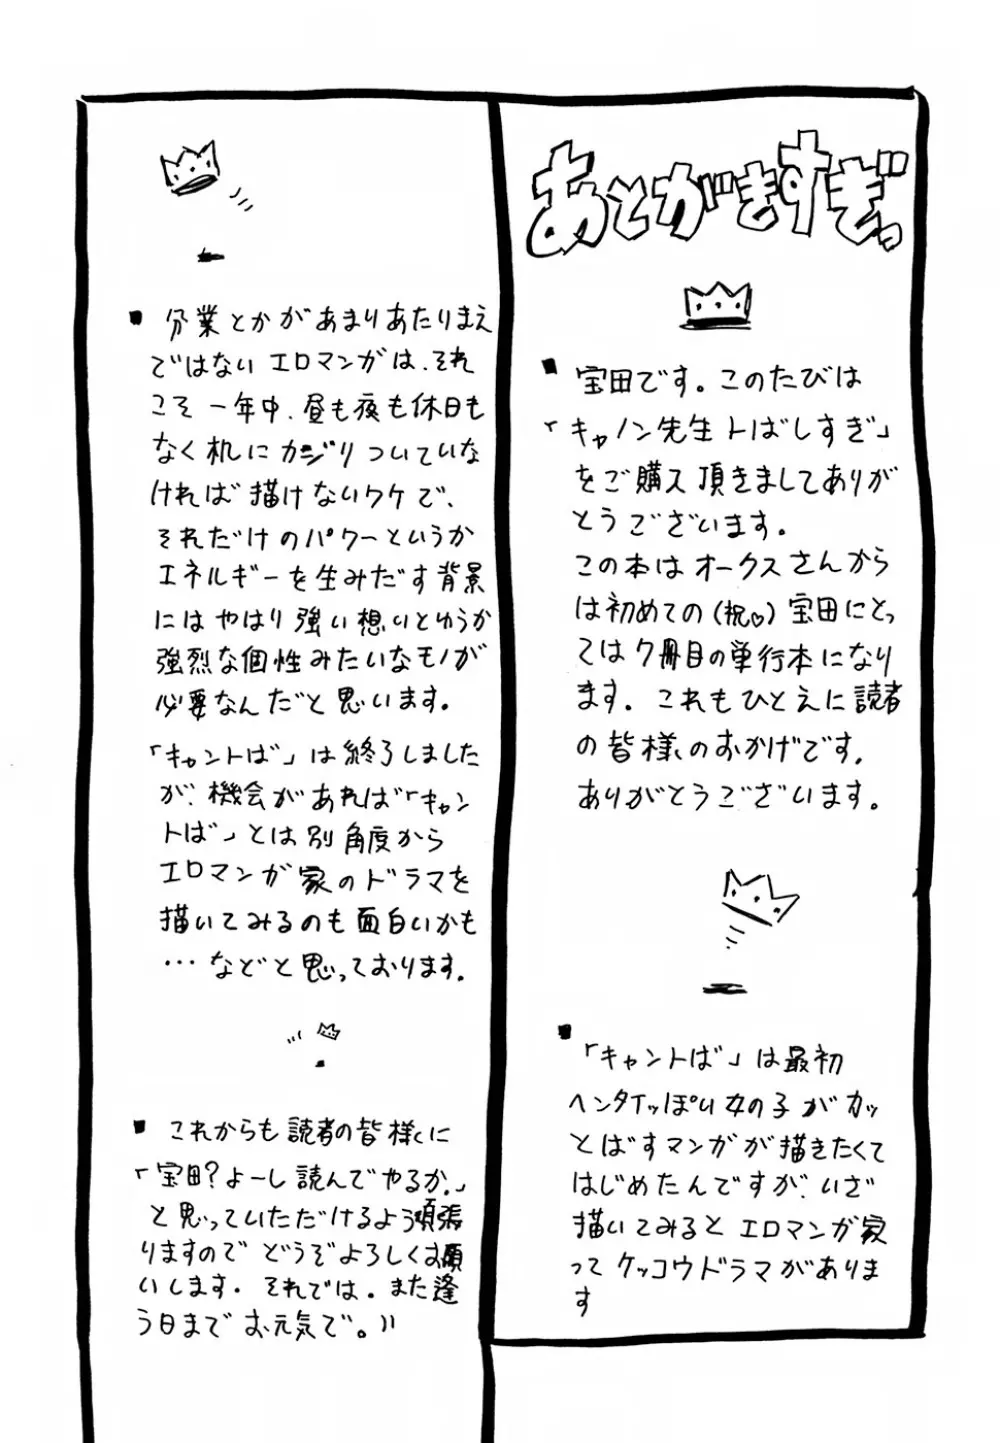 あとがきすぎっ
■ 宝田です。このたびは
「キャノン先生トばしすぎ」
をご購入頂きましてありが
とうございます。
この本はオークスさんから
は初めての(祝♡)宝田にとっ
ては7冊目の単行本になり
ます。これもひとえに読者
の皆様のおかげです。
ありがとうございます。
■
「キャントば」は最初
ヘンタイっぽい女の子がカッ
とばすマンガが描きたくて
はじめたんですが、いざ
描いてみるとエロマンガ家
ってケッコウドラマがありま
す
■ 分業とかがあまりあたりまえ
ではないエロマンガは、それ
こそ一年中、昼も夜も休日も
なく机にカジりついていな
ければ描けないワケで、
それだけのパワーというか
エネルギーを生みだす背景
にはやはり強い想いとゆうか
強烈な個性みたいなモノが
必要なんだと思います。
「キャントば」は終了しました
が、機会があれば「キャン
トば」とは別角度から
エロマンガ家のドラマを
描いてみるのも面白いかも
…などと思っております。
■ これからも読者の皆様に
「宝田?よーし読んでやるか。」
と思っていただけるよう頑張
りますのでどうぞよろしくお願
いします。それでは。また逢
う日までお元気で。〃